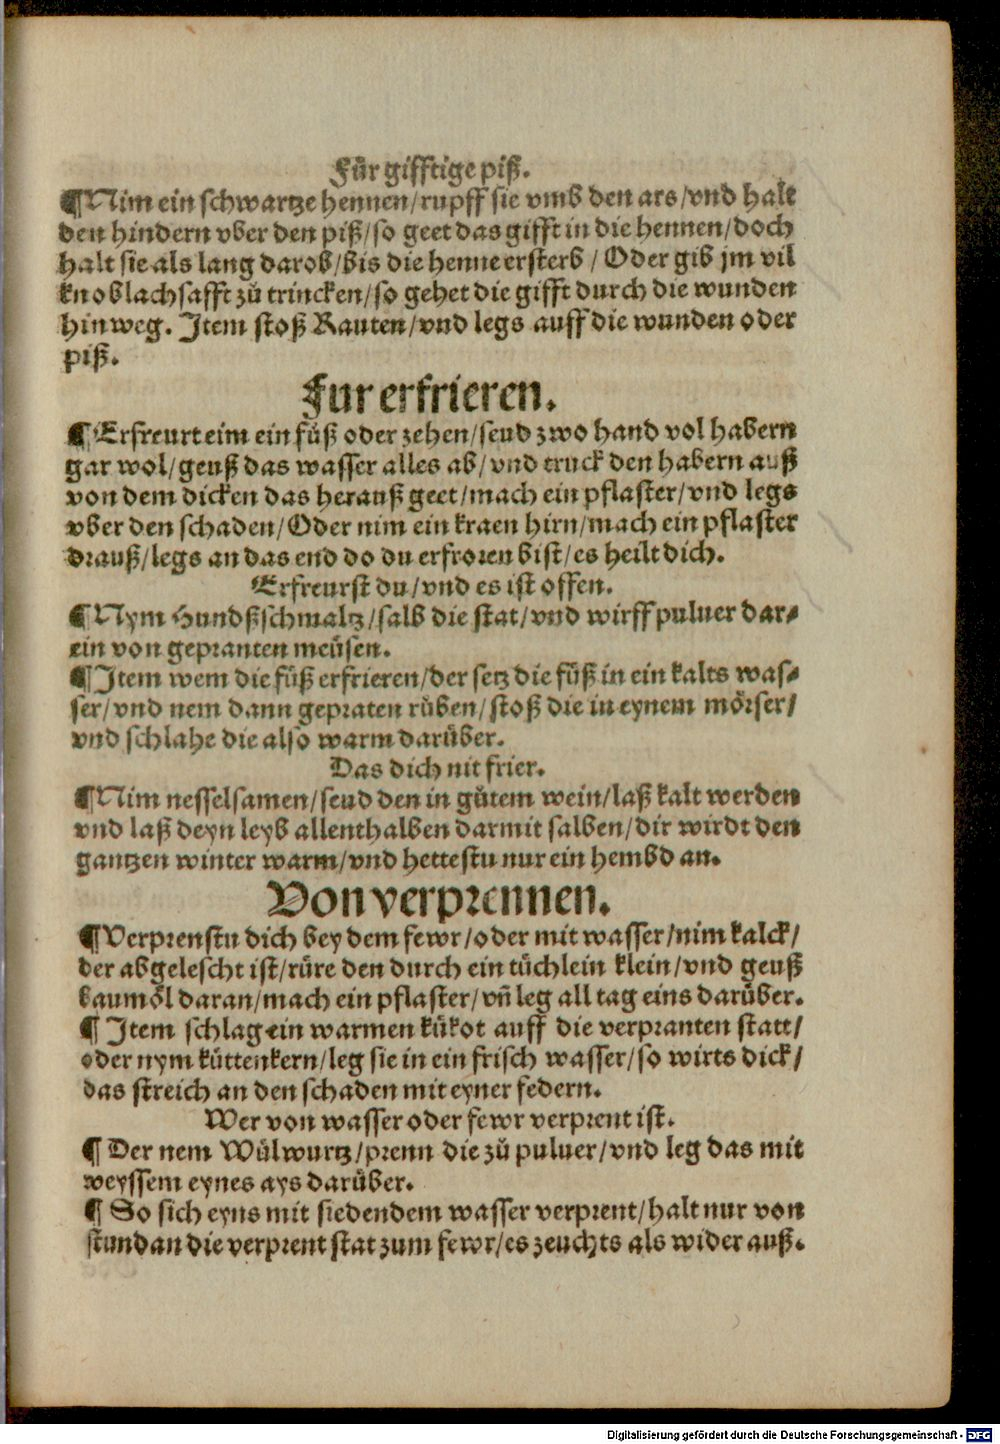 Für gifftige piß.
¶Nim ein schwartze hennen/rupff sie vmb den ars/vnd halt
den hindern vber den piß/so geet das gifft in die hennen/doch
halt sie als lang darob/bis die henne ersterb/Oder gib jm vil
knoblachsafft zů trincken/so gehet die gifft durch die wunden
hinweg. Item stoß Rauten/vnd legs auff die wunden oder
piß.
Fur erfrieren.
¶Erfreurt eim ein fůß oder zehen/seud zwo hand vol habern
gar wol/geuß das wasser alles ab/vnd truck den habern auß
von dem dicken das herauß geet/mach ein pflaster/vnd legs
vber den schaden/Oder nim ein kraen hirn/mach ein pflaster
drauß/legs an das end do du erfroren bist/es heilt dich.
Erfreurst du/vnd es ist offen.
¶Nym Hundßschmaltz/salb die stat/vnd wirff puluer dar-
ein von gepranten meüsen.
¶Item wem die füß erfrieren/der setz die füß in ein kalts was-
ser/vnd nem dann gepraten rüben/stoß die in eynem mörser/
vnd schlahe die also warm darüber.
Das dich nit frier.
¶Nim nesselsamen/seud den in gůtem wein/laß kalt werden
vnd laß deyn leyb allenthalben darmit salben/dir wirdt den
gantzen winter warm/vnd hettestu nur ein hembd an.
Von verprennen.
¶Verprenstu dich bey dem fewr/oder mit wasser/nim kalck/
der abgelescht ist/rüre den durch ein tüchlein klein/vnd geuß
baumöl daran/mach ein pflaster/vñ leg all tag eins darüber.
¶Item schlag ein warmen kükot auff die verpranten statt/
oder nym küttenkern/leg sie in ein frisch wasser/so wirts dick/
das streich an den schaden mit eyner federn.
Wer von wasser oder fewr verprent ist.
¶Der nem Wülwurtz/prenn die zů puluer/vnd leg das mit
weyssem eynes ays darüber.
¶So sich eyns mit siedendem wasser verprent/halt nur von
stundan die verprent stat zum fewr/es zeuchts als wider auß.
Digitalisierung gefördert durch die Deutsche Forschungsgemeinschaft - DFG